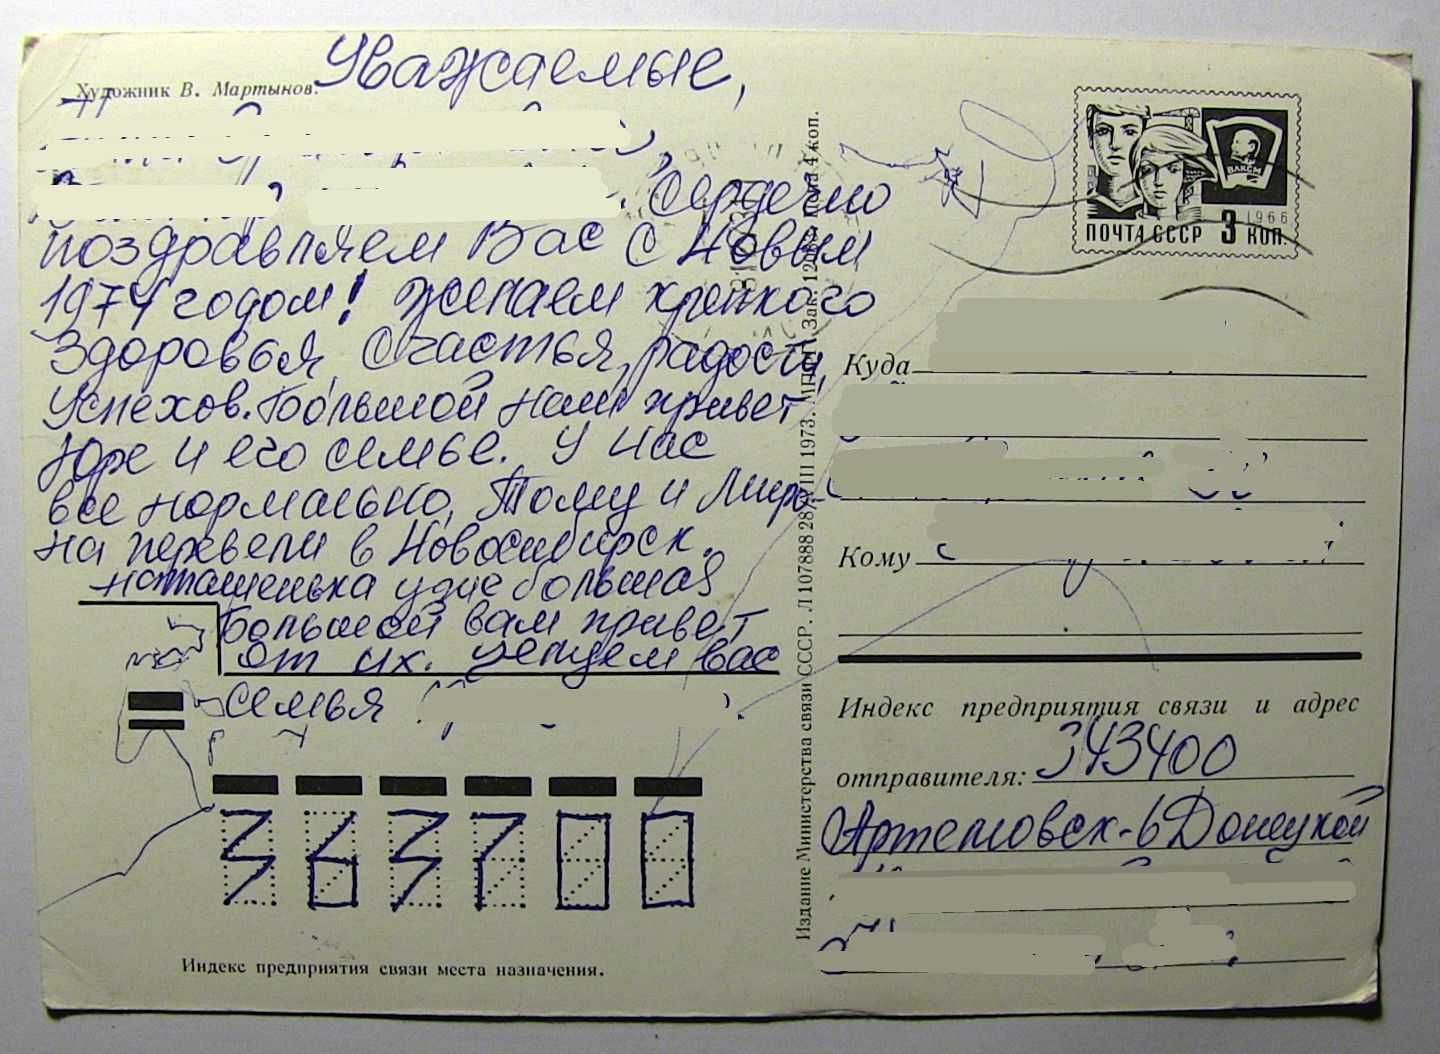 Художник В. Мартынов.
Уважаемые,
сердечно
поздравляем Вас с Новым
1974 годом! Желаем крепкого
здоровья, счастья, радости,
успехов. Большой наш привет
Юре и его семье. У нас
все нормально, Толяу и Лиды-
на перевели в Новосибирск.
Наташенька уже большая
Большой вам привет
от их. Целуем вас
семья
363700
Индекс предприятия связи места назначения.
Издание Министерства связи СССР. Л 107888 28/VIII 1973. Цена 4 коп.
ВЛКСМ
1966
ПОЧТА СССР 3 КОП.
Куда
Кому
Индекс предприятия связи и адрес
отправителя: 343400
Артемовск-6 Донецкой